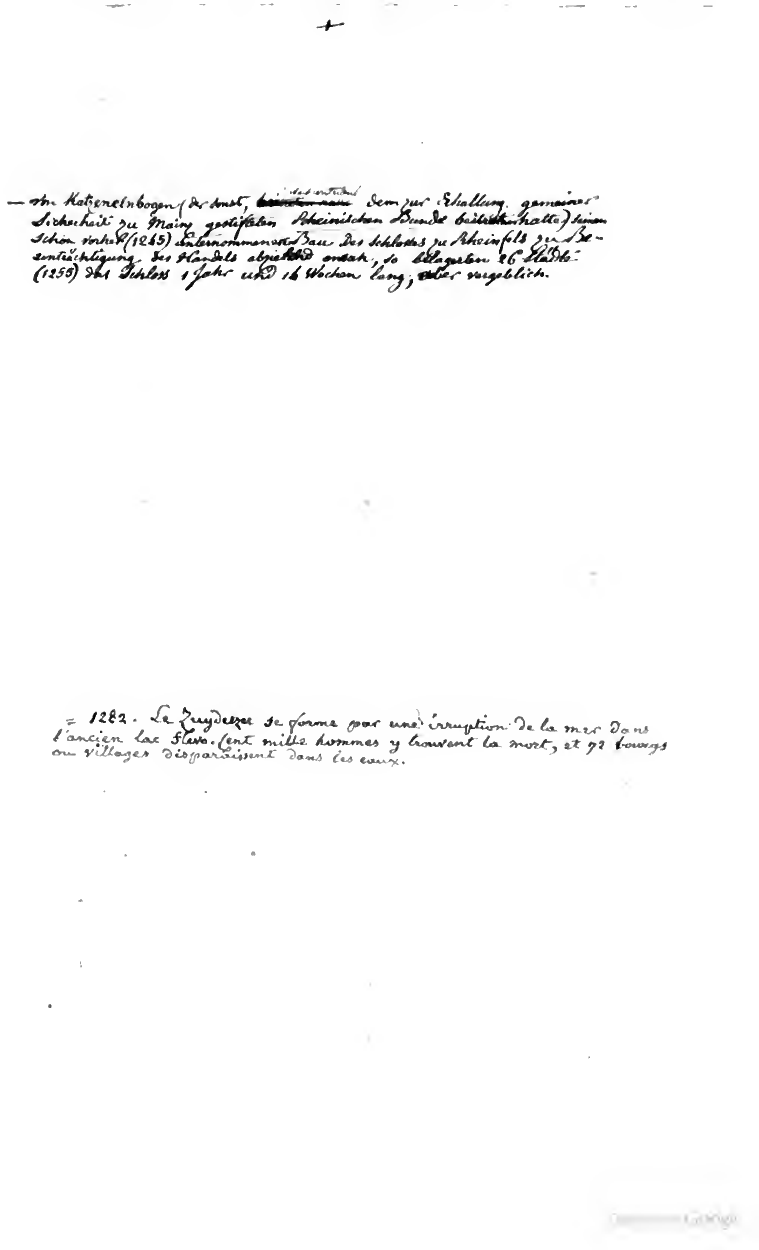 — von Katzenelnbogen (der sonst, dem zur Erhaltung gemeiner
Sicherheit zu Mainz gestifteten Rheinischen Bunde beitreten hatte) seinen
schon vorher (1245) unternommenen Bau des Schlosses zu Rheinfels zu Be-
einträchtigung des Handels abzielend ansah, so belagerten 26 Städte
(1255) das Schloss 1 Jahr und 14 Wochen lang, aber vergeblich.
= 1282. Le Zuyderzee se forme par une irruption de la mer dans
l'ancien lac Flevo. Cent mille hommes y trouvent la mort, et 72 bourgs
ou villages disparaissent dans les eaux.
Google